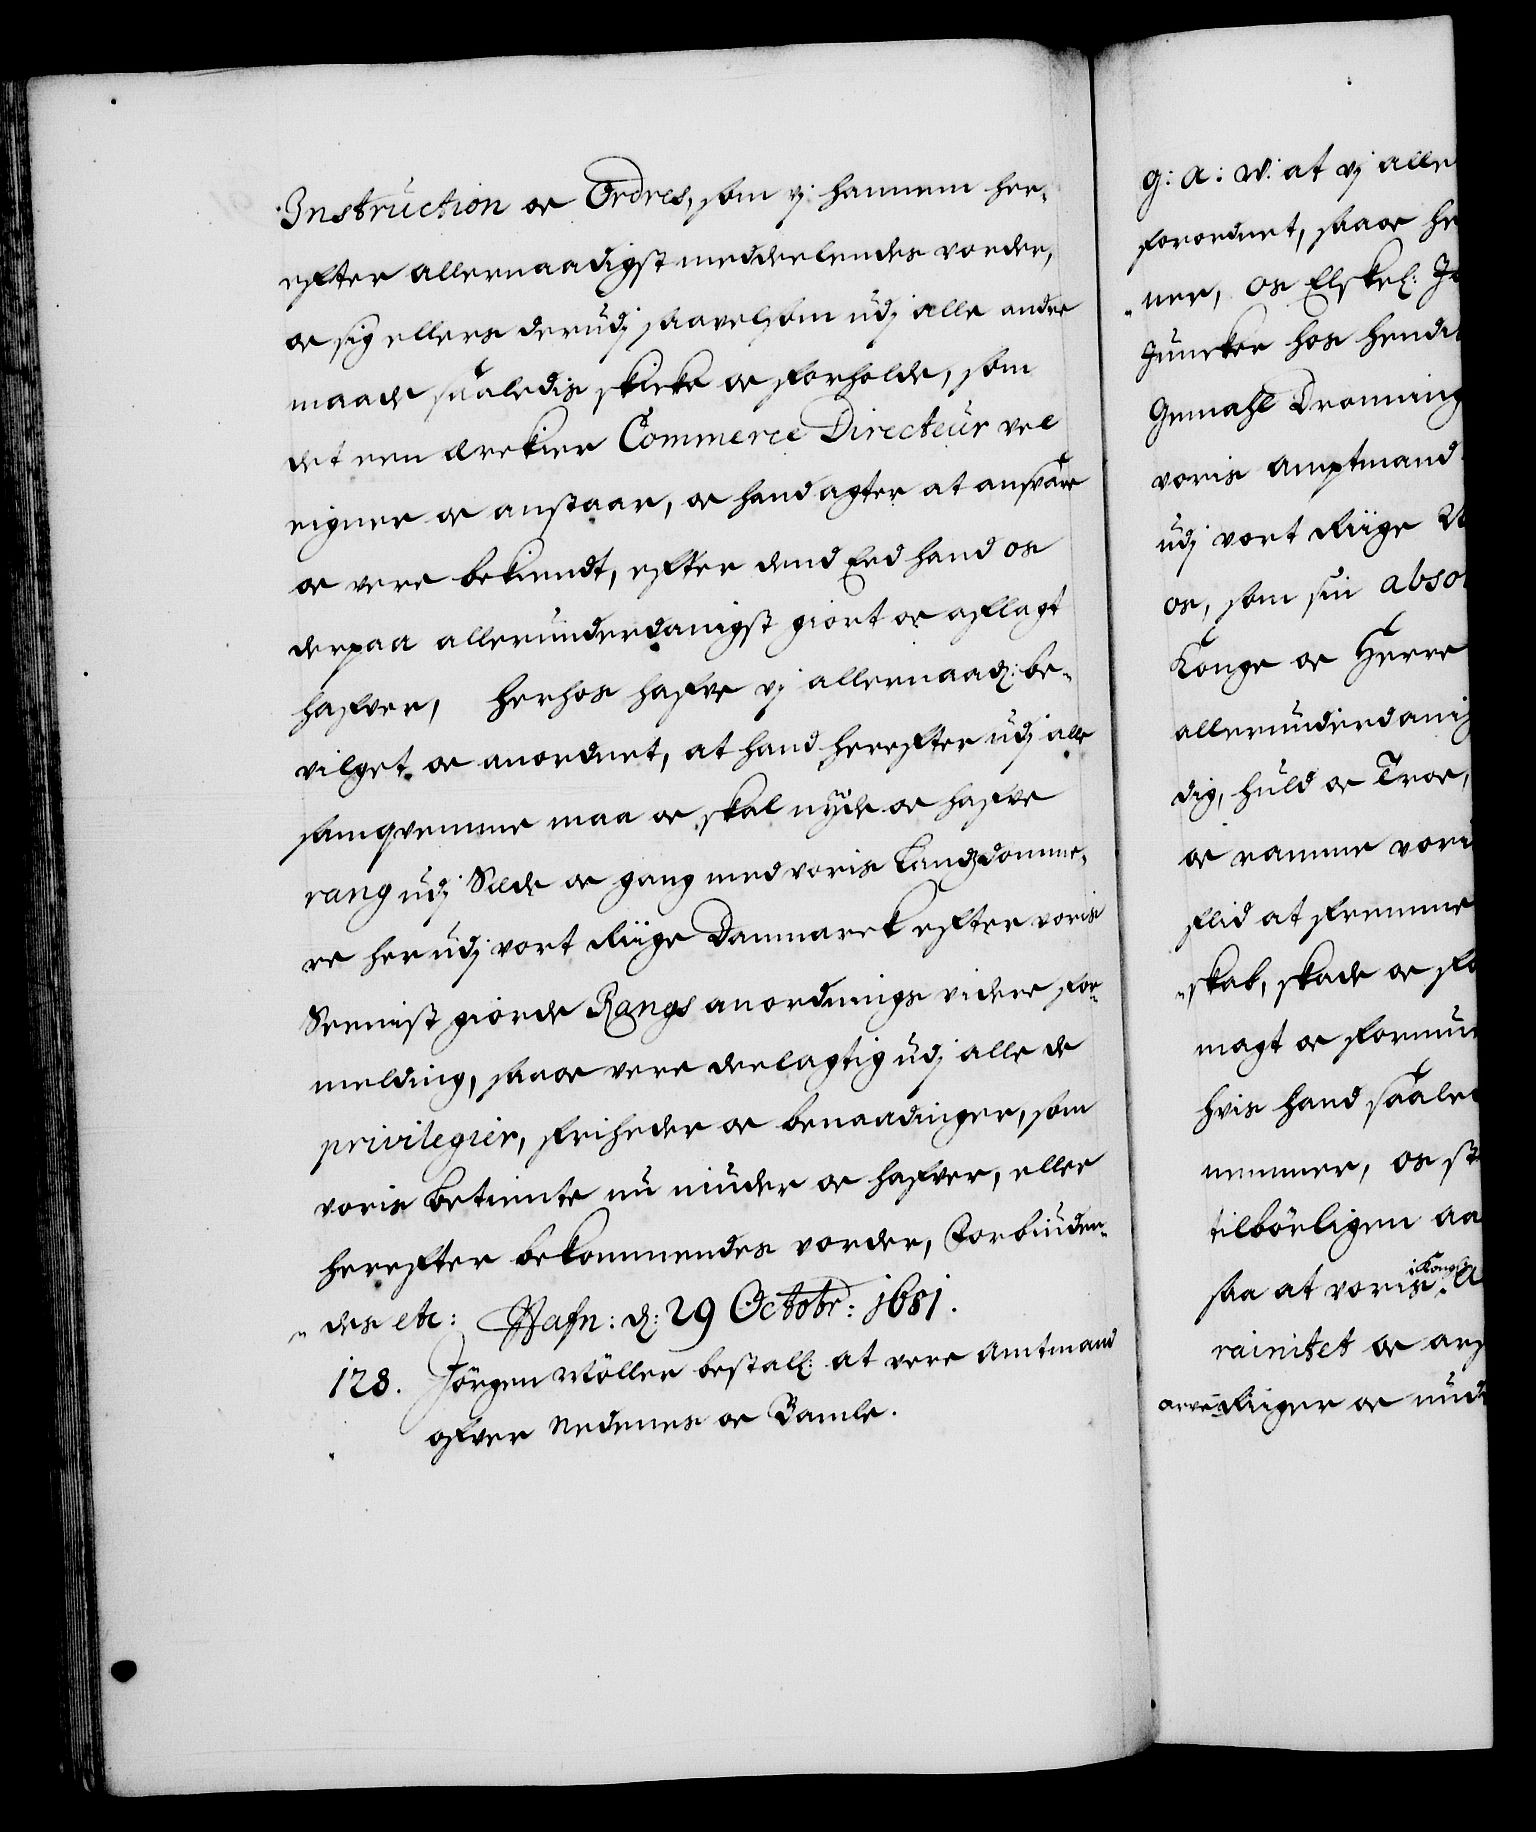 Instruction oc Ordres, som vj hannem her-
efter allernaadigst meddeelendes vorder,
oc sig ellers derudj saavelsom udj alle andre
maade saaledis skicke oc forholde, som
det een ærekier Commerce Directeur vel
eigner oc anstaar, oc hand agter at ansvare
oc vere bekiendt, efter dend Eed hand os
derpaa allerunderdanigst giort oc aflagt
hafver, herhos hafve vj allernaad: be-
vilget oc anordnet, at hand herefter udj alle
samqvemme maa oc skal nyde oc hafve
rang udj Sæde oc gang med voris Landzdomme-
re her udj vort Riige Danmarck efter voris
Seenist giorde Rangs anordnings videre for-
melding, saa oc vere deelagtig udj alle de
privilegier, friheder oc benaadinger, som
voris Betiente nu niuder oc hafver, eller
herefter bekommendes vorder, Forbiuden-
des etc: Hafn: d: 29 Octobr: 1681.
128. Jörgen Möller bestall: at vere Amtmand
ofver Nedenes oc Bamle.
G: A: V: at vj alle
forordnet, saa oc he
ner, os Elskel: J
Juncker hos hendis
Gemahl Dronning
voris Amptmand
udj vort Riige
os, som sin abso
Konge oc Herre
allerunderdanig
dig, huld oc Troe,
oc ramme voris
flid at fremme
skab, skade oc fo
magt oc formue
hvis hand saaled
nemmer, os st
tilbörligen aa
saa at voris Kongl:
rainitet oc arf
arve Riiger oc